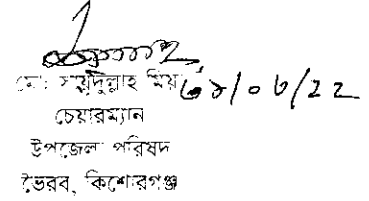 মোঃ সায়দুল্লাহ মিয়া
৩১/০৮/২২
চেয়ারম্যান
উপজেলা পরিষদ
ভৈরব, কিশোরগঞ্জ